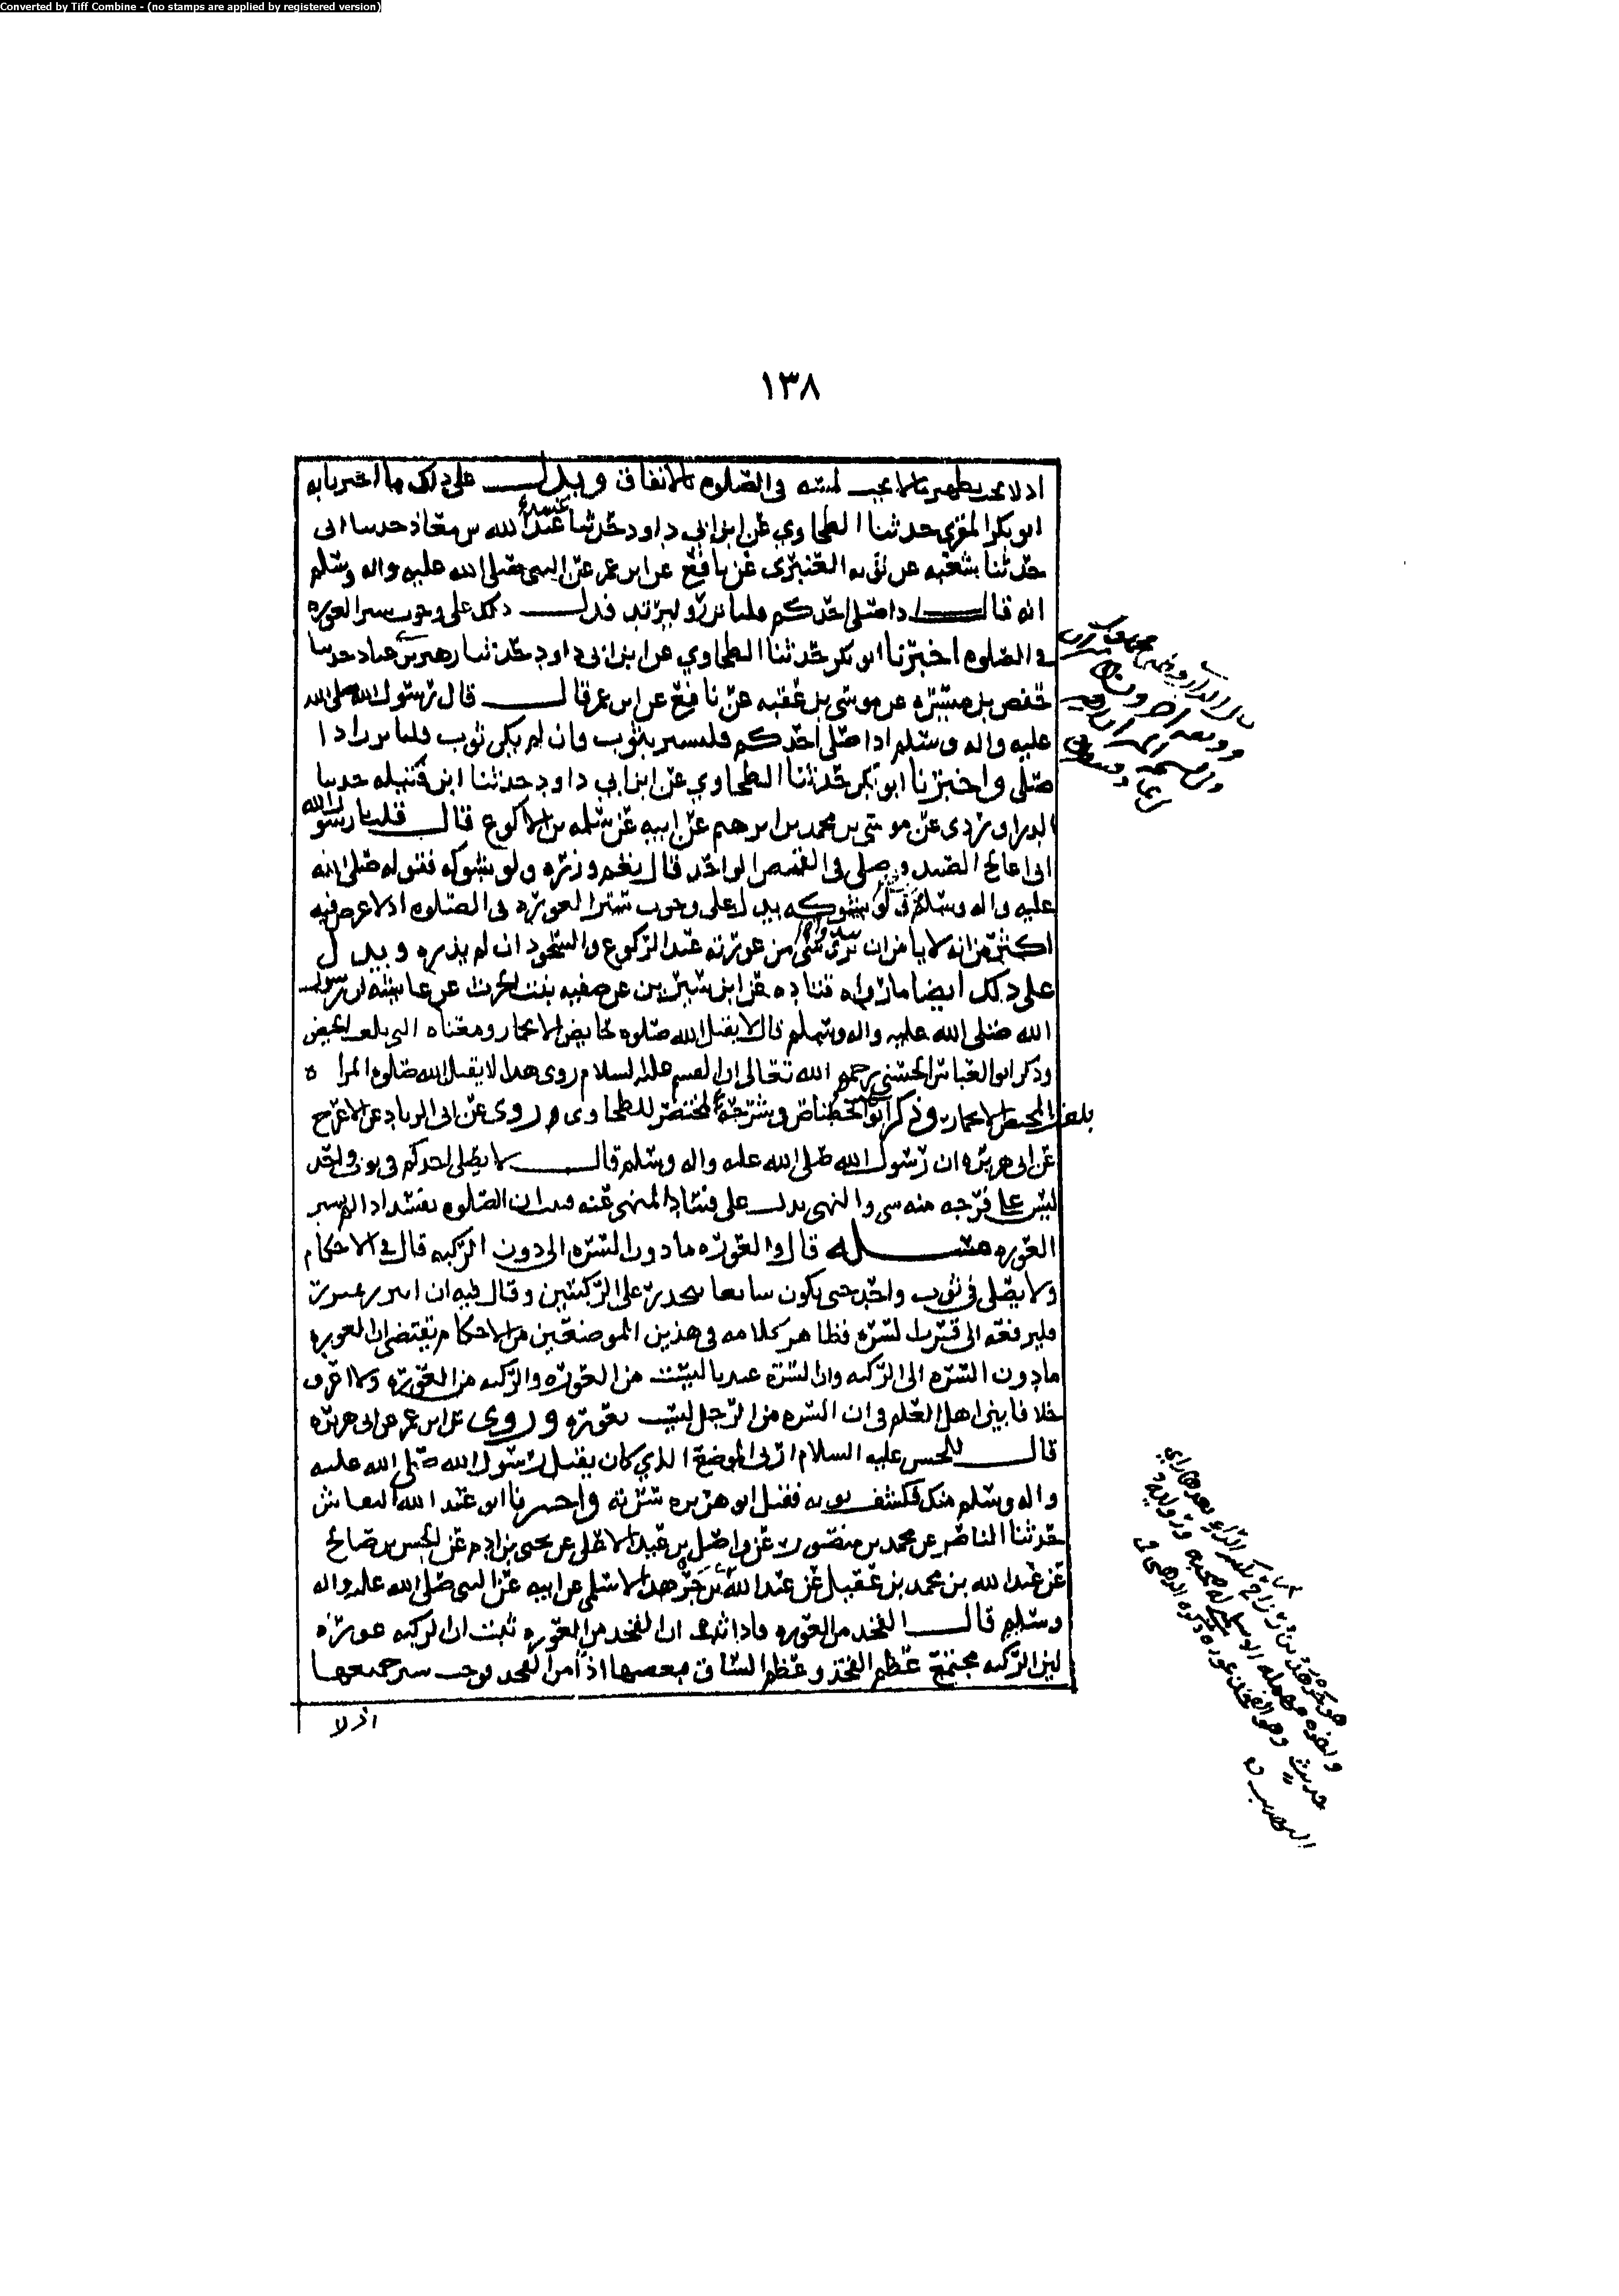 Converted by Tiff Combine - (no stamps are applied by registered version)
١٣٨
اذ لا يجب تطهير ما لا يجب لبسه في الصلوه بالاتفاق ويدل على ذلك ما اخبرنا به
ابو بكر المقري حدثنا الطحاوي عن ابن ابي داود حدثنا عبد الله بن معاذ حدثنا ابي
حدثنا شعبه عن توبه العنبري عن نافع عن ابن عمر عن النبي صلى الله عليه واله وسلم
انه قال اذا صلى احدكم فليأتزر وليرتد فدل ذلك على وجوب ستر العوره
في الصلوه اخبرنا ابو بكر حدثنا الطحاوي عن ابن ابي داود حدثنا زهير بن عباد حدثنا
حفص بن ميسره عن موسى بن عقبه عن نافع عن ابن عمر قال قال رسول الله صلى الله
عليه واله وسلم اذا صلى احدكم فليستتر بثوب وان لم يكن ثوب فليأتزر اذا
صلى واخبرنا ابو بكر حدثنا الطحاوي عن ابن ابي داود حدثنا ابن قتيله حدثنا
الدراوردي عن موسى بن محمد بن ابرهيم عن ابيه عن سلمه بن الاكوع قال قلت يا رسول الله
اني اعالج الصيد فاصلي في القميص الواحد قال نعم وزره ولو بشوكه فقوله صلى الله
عليه واله وسلم ولو بشوكه يدل على وجوب ستر العوره في الصلوه اذ لا غرض فيه
اكثر من انه لا يامن ان ترى شي من عورته عند الركوع والسجود ان لم يزره ويدل
على ذلك ايضا ما رواه قتاده عن ابن سيرين عن صفيه بنت الحرث عن عايشه ان رسول
الله صلى الله عليه واله وسلم قال لا يقبل الله صلوه حايض الا بخمار ومعناه التي بلغت الحيض
وذكر ابو العباس الحسني رحمه الله تعالى ان القسم عليه السلام روى هذا لا يقبل الله صلوه المراه
بلغت المحيض الا بخمار وذكر ابو الجصاص في شرحه لمختصر الطحاوي وروى عن ابي الزناد عن الاعرج
عن ابي هريره ان رسول الله صلى الله عليه واله وسلم قال لا يصلي احدكم في ثوب واحد
ليس على فرجه منه شي والنهي يدل على فساد المنهي عنه فدل ان الصلوه تفسد اذا لم يستر
العوره مسئله قال والعوره ما دون السره الى دون الركبه قال في الاحكام
ولا يصلي في ثوب واحد حتى يكون سابغا ينحدر على الركبتين وقال فيه ان اتزر بميزر
فليرفعه الى قرب السره فظاهر كلامه في هذين الموضعين من الاحكام يقتضي ان العوره
ما دون السره الى الركبه وان السره عندنا ليست من العوره والركبه من العوره ولا اعرف
خلافا بين اهل العلم في ان السره من الرجل ليست بعوره وروي عن ابن عمر عن ابي هريره
قال للحسن عليه السلام ارني الموضع الذي كان يقبل رسول الله صلى الله عليه
واله وسلم منك فكشف ثوبه فقبل ابو هريره سرته واخبرنا ابو عبد الله النقاش
حدثنا الناصر عن محمد بن منصور عن واصل بن عبد الاعلى عن يحيى بن ادم عن الحسن بن صالح
عن عبد الله بن محمد بن عقيل عن عبد الله بن جرهد الاسلمي عن ابيه عن النبي صلى الله عليه واله
وسلم قال الفخذ من العوره فاذا ثبت ان الفخذ من العوره ثبت ان الركبه عوره
لان الركبه مجتمع عظم الفخذ وعظم الساق فبعضها اذا من الفخذ فوجب ستر جميعها
اذ لا